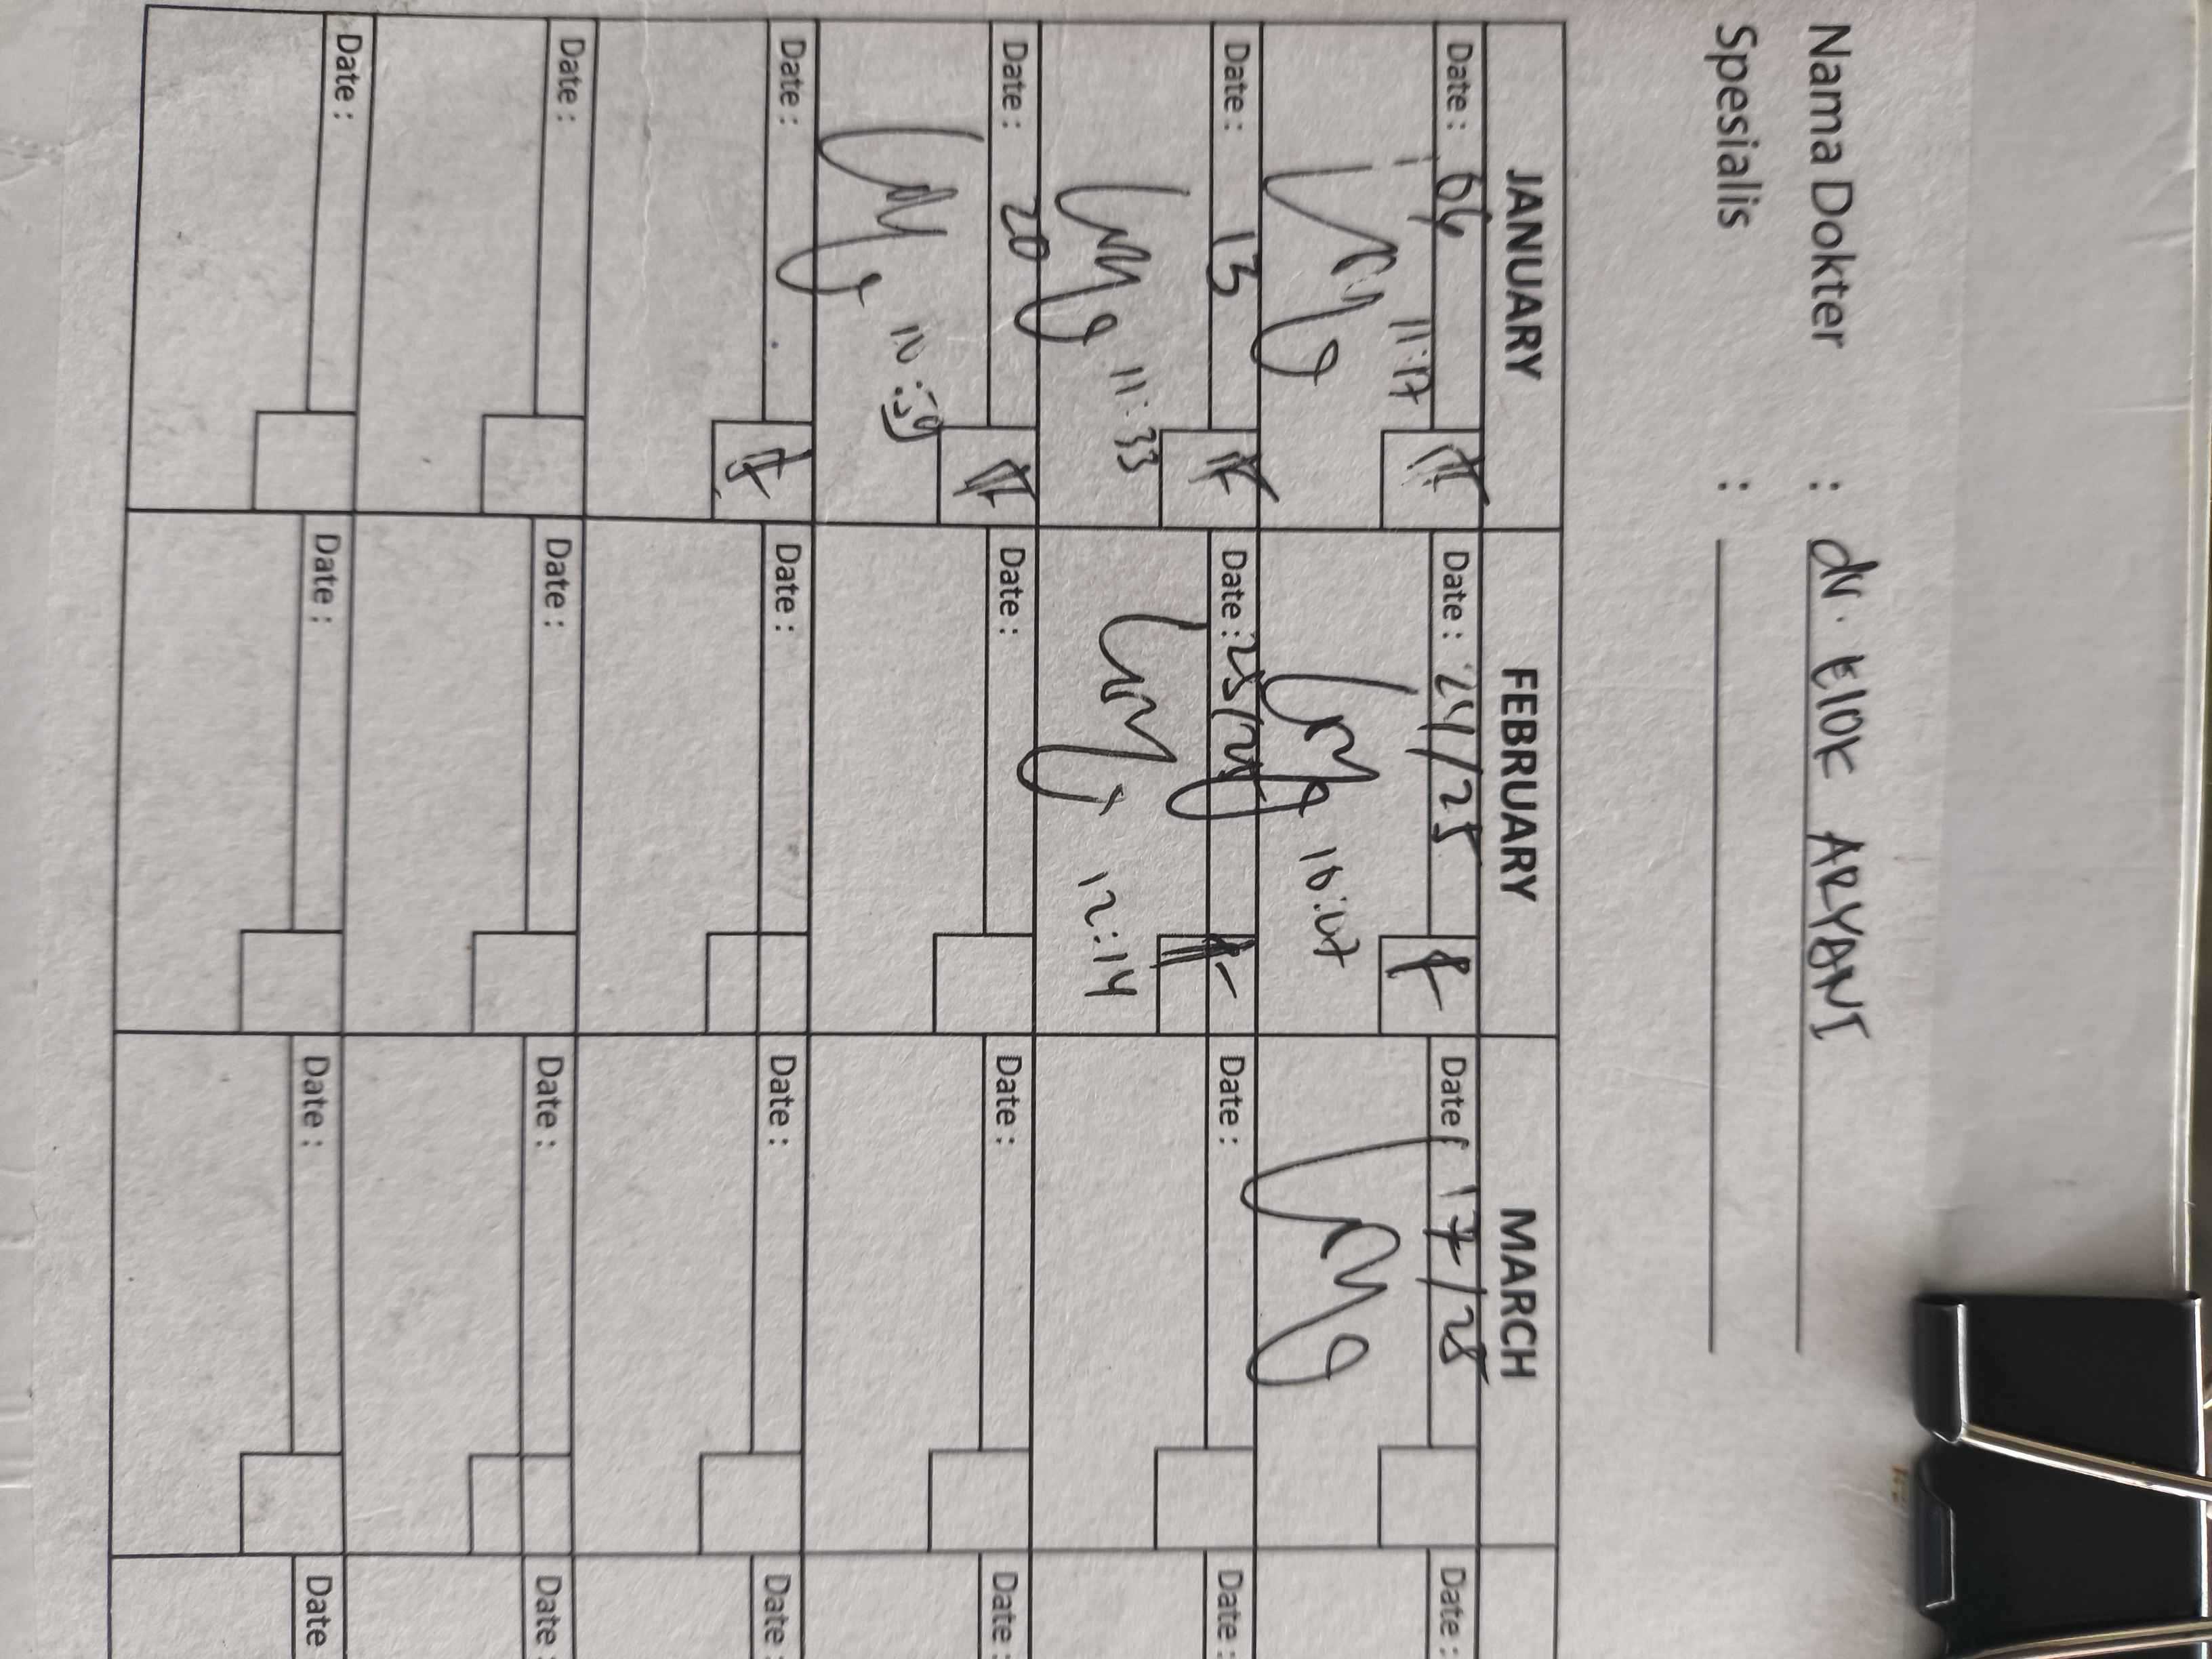 Nama Dokter : dr. Elok ARYANI
Spesialis :
JANUARY FEBRUARY MARCH
Date : 06 Date : 24/25 Date : 17/25 Date :
11:17 10:47
Date : 13 Date : 25/25 Date : Date :
11:33 12:14
Date : 20 Date : Date : Date :
10:59
Date : Date : Date : Date :
Date : Date : Date : Date :
Date : Date : Date : Date